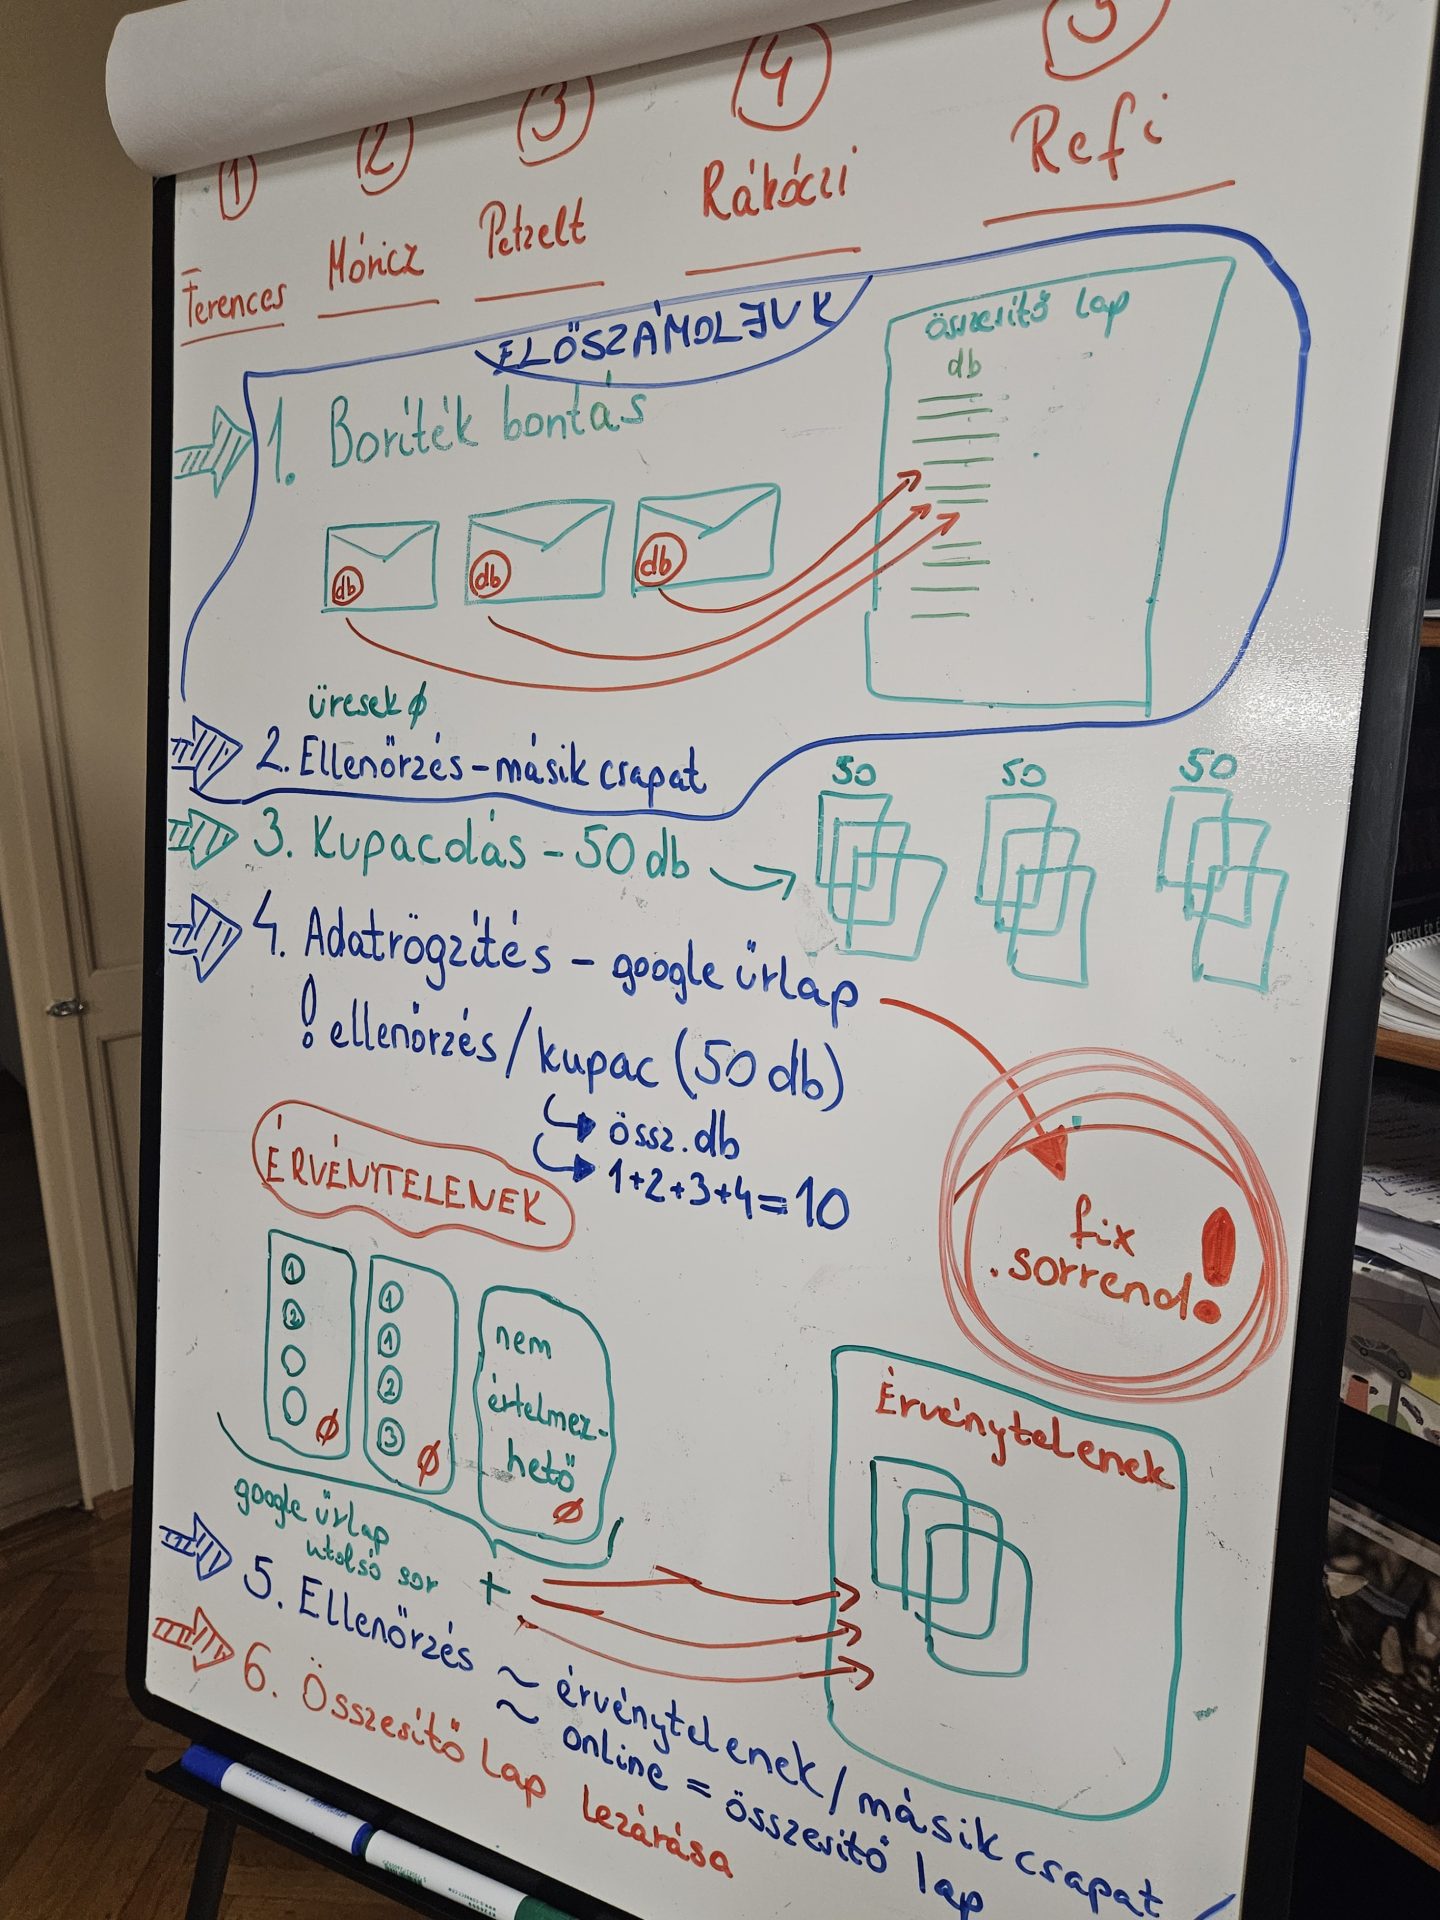 1
2
3
4
5
Ferences
Móricz
Petzelt
Rákóczi
Refi
ELŐSZÁMOLJUK
összesítő lap
db
1. Boríték bontás
db
db
db
üresek ∅
2. Ellenőrzés - másik csapat
50
50
50
3. Kupacolás - 50 db
4. Adatrögzítés - google űrlap
! ellenőrzés / kupac (50 db)
össz. db
1+2+3+4=10
fix
sorrend!
ÉRVÉNYTELENEK
1
2
∅
1
1
2
3
∅
nem
értelmez-
hető
∅
google űrlap
utolsó sor
+
Érvénytelenek
5. Ellenőrzés ~ érvénytelenek / másik csapat
~ online = összesítő lap
6. Összesítő lap lezárása